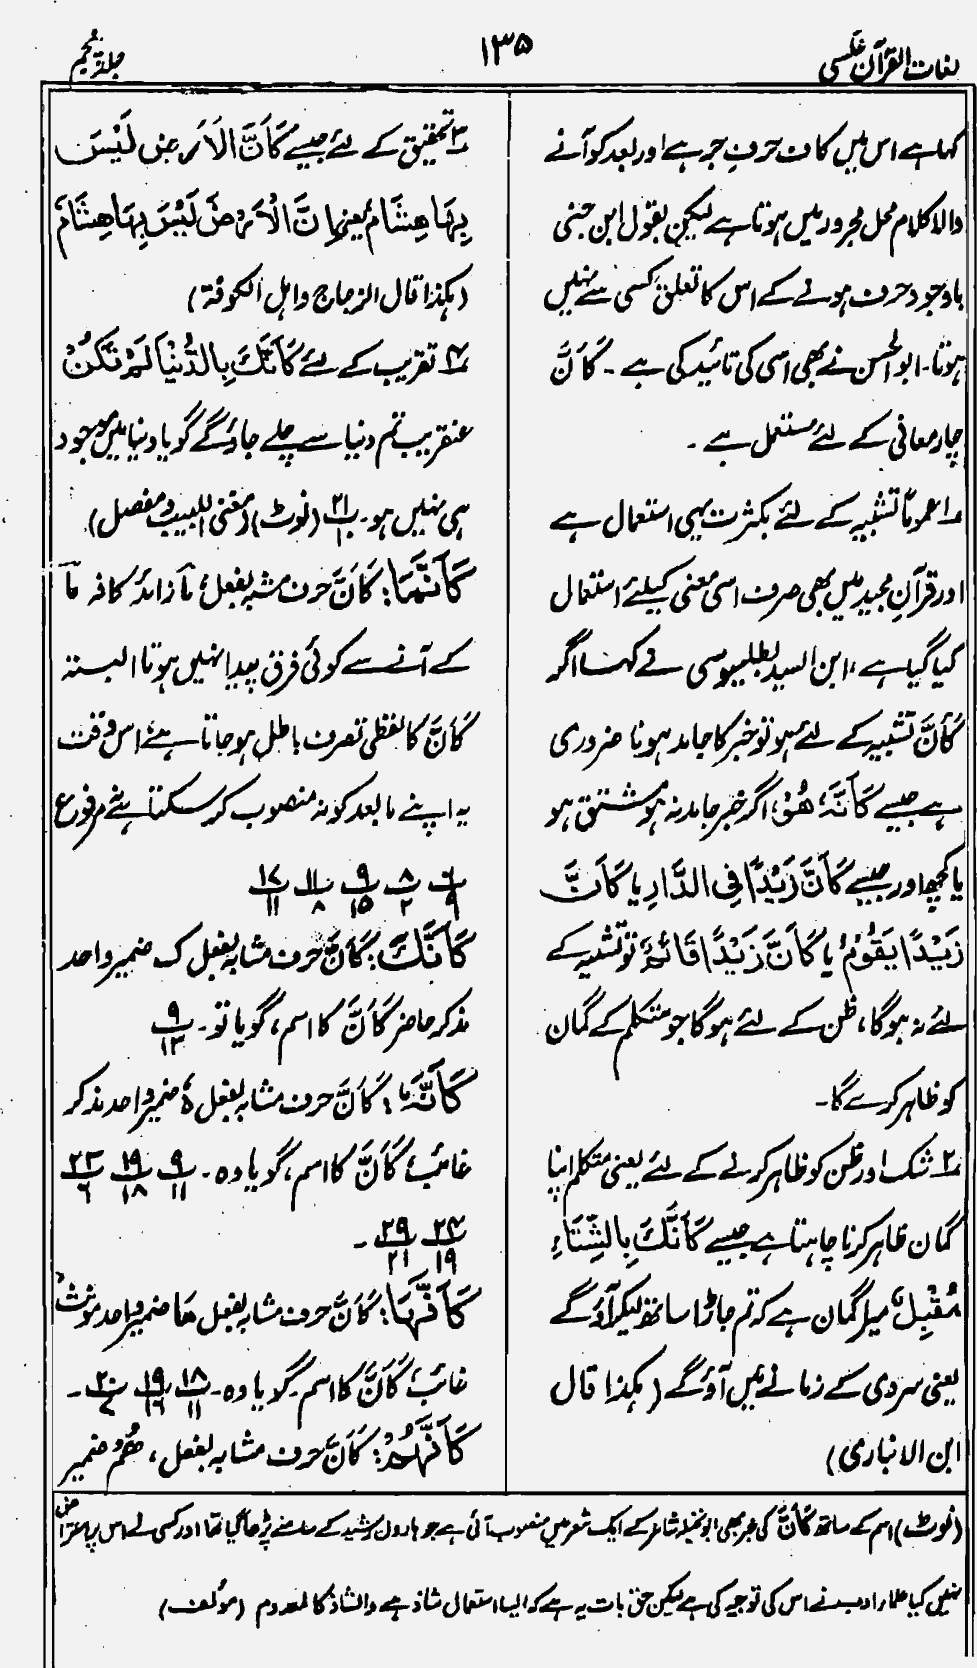 لغات القرآن عکسی
۱۳۵
جلد پنجم
کہا ہے اس میں کاف حرفِ جر ہے اور بعد کو آنے
والا کلام محل مجرور میں ہوتا ہے لیکن بقول ابن جنی
باوجود حرف ہونے کے اس کا تعلق کسی سے نہیں
ہوتا۔ ابوالحسن نے بھی اسی کی تائید کی ہے۔ کَاَنَّ
چار معانی کے لئے مستعمل ہے۔
۱؎ عموماً تشبیہ کے لئے بکثرت یہی استعمال ہے
اور قرآن مجید میں بھی صرف اسی معنی کیلئے استعمال
کیا گیا ہے، ابن السید بطلیوسی نے کہا اگر
کَاَنَّ تشبیہ کے لئے ہو تو خبر کا جامد ہونا ضروری
ہے جیسے کَاَنَّہٗ ھُوَ، اگر خبر جامد نہ ہو مشتق ہو
یا کچھ اور جیسے کَاَنَّ زَیْدًا فِی الدَّارِ یا کَاَنَّ
زَیْدًا یَقُوْمُ یا کَاَنَّ زَیْدًا قَائِمٌ تو تشبیہ کے
لئے نہ ہوگا، ظن کے لئے ہوگا جو متکلم کے گمان
کو ظاہر کرے گا۔
۲؎ شک اور ظن کو ظاہر کرنے کے لئے یعنی متکلم اپنا
گمان ظاہر کرنا چاہتا ہے جیسے کَاَنَّکَ بِالشِّتَاءِ
مُقْبِلٌ میرا گمان ہے کہ تم جاڑا ساتھ لیکر آؤ گے
یعنی سردی کے زمانے میں آؤ گے (ہکذا قال
ابن الانباری)
۳؎ تحقیق کے لئے جیسے کَاَنَّ الْاَرْضَ لَیْسَ
بِہَا ہِشَامٌ یعنی اِنَّ الْاَرْضَ لَیْسَ بِہَا ہِشَامٌ
(ہکذا قال الزجاج و اہل الکوفۃ)
۴؎ تقریب کے لئے کَاَنَّکَ بِالدُّنْیَا لَمْ تَکُنْ
عنقریب تم دنیا سے چلے جاؤ گے گویا دنیا میں موجود
ہی نہیں ہو۔ ۲۱/۱ (نوٹ) (مغنی اللبیب و مفصل)
کَاَنَّمَا: کَاَنَّ حرف مشبہ بفعل، مَا زائدہ کافہ مَا
کے آنے سے کوئی فرق پیدا نہیں ہوتا البتہ
کَاَنَّ کا لفظی تصرف باطل ہو جاتا ہے، اس وقت
یہ اپنے مابعد کو نہ منصوب کر سکتا ہے نہ مرفوع
۶/۹ ۸/۲ ۹/۱۵ ۱۱/۸ ۱۷/۱۱
کَاَنَّکَ: کَاَنَّ حرف مشابہ بفعل کَ ضمیر واحد
مذکر حاضر کَاَنَّ کا اسم، گویا تو۔ ۹/۱۳
کَاَنَّہٗ: کَاَنَّ حرف مشابہ بفعل ہٗ ضمیر واحد مذکر
غائب، کَاَنَّ کا اسم، گویا وہ۔ ۹/۱۱ ۱۹/۱۸ ۲۳/۶
۲۴/۱۹ ۲۹/۲۱ ۔
کَاَنَّہَا: کَاَنَّ حرف مشابہ بفعل ھَا ضمیر واحد مؤنث
غائب، کَاَنَّ کا اسم۔ گویا وہ۔ ۱۸/۱۱ ۱۹/۱۶ ۲۰/۷ ۔
کَاَنَّہُمْ: کَاَنَّ حرف مشابہ بفعل، ھُمْ ضمیر
(نوٹ) اسم کے ساتھ کَاَنَّ کی خبر بھی ابونخیلہ شاعر کے ایک شعر میں منصوب آئی ہے جو ہارون رشید کے سامنے پڑھا گیا تھا اور کسی نے اس پر اعتراض
نہیں کیا علماء ادب نے اس کی توجیہ کی ہے لیکن حق بات یہ ہے کہ ایسا استعمال شاذ ہے والشاذ کالمعدوم (مؤلف)